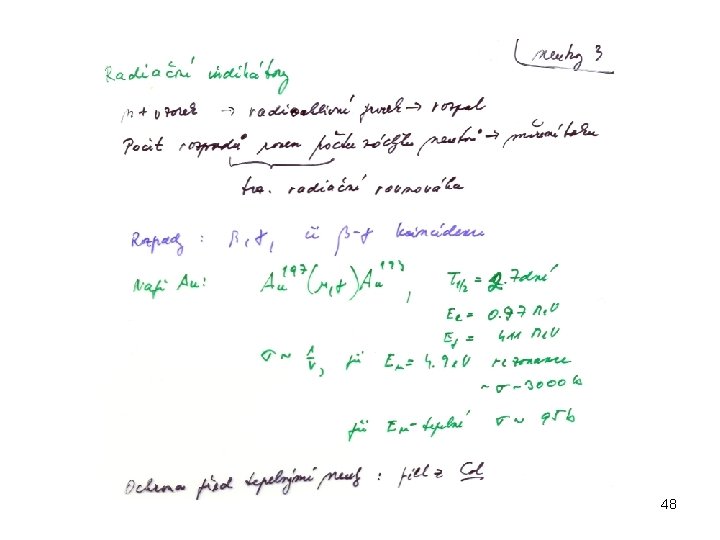 neutrony 3
Radiační indikátory
n + vzorek → radioaktivní prvek → rozpad
Počet rozpadů roven počtu záchytu neutronů → měření toku
tzv. radiační rovnováha
Rozpad : β, γ, či β-γ koincidence
Např Au: Au¹⁹⁷(n,γ)Au¹⁹⁸, T1/2 = 2.7 dní
Ee = 0.97 MeV
Eγ = 411 MeV
σ ~ 1/v, při En = 4.9 eV rezonance
~ σ ~ 3000 b
při En-tepelné σ ~ 95 b
Ochrana před tepelnými neut : fitl z Cd
48